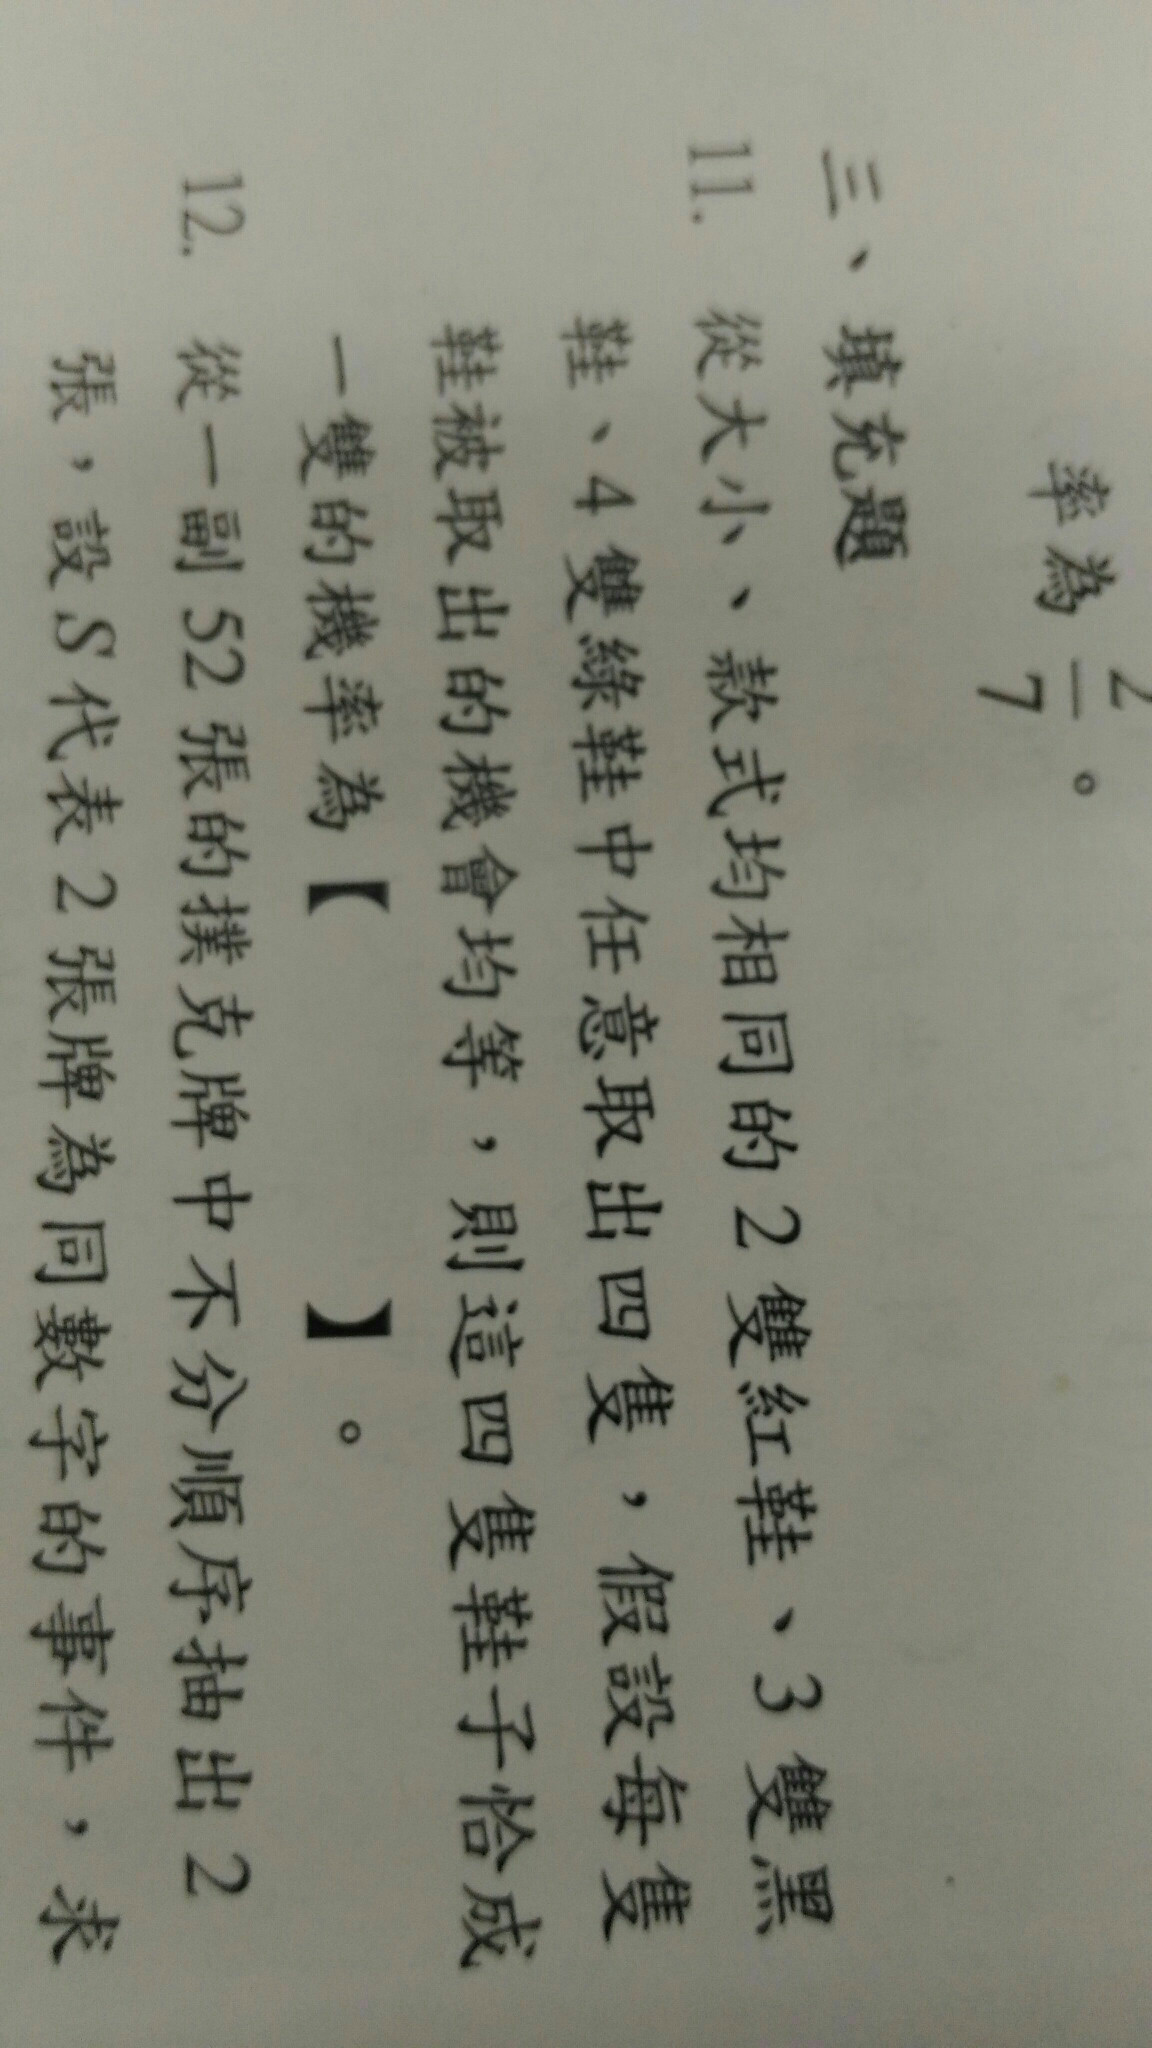 率為 2/7 。
三、填充題
11. 從大小、款式均相同的 2 雙紅鞋、3 雙黑
鞋、4 雙綠鞋中任意取出四隻，假設每隻
鞋被取出的機會均等，則這四隻鞋子恰成
一雙的機率為【 】。
12. 從一副 52 張的撲克牌中不分順序抽出 2
張，設 S 代表 2 張牌為同數字的事件，求